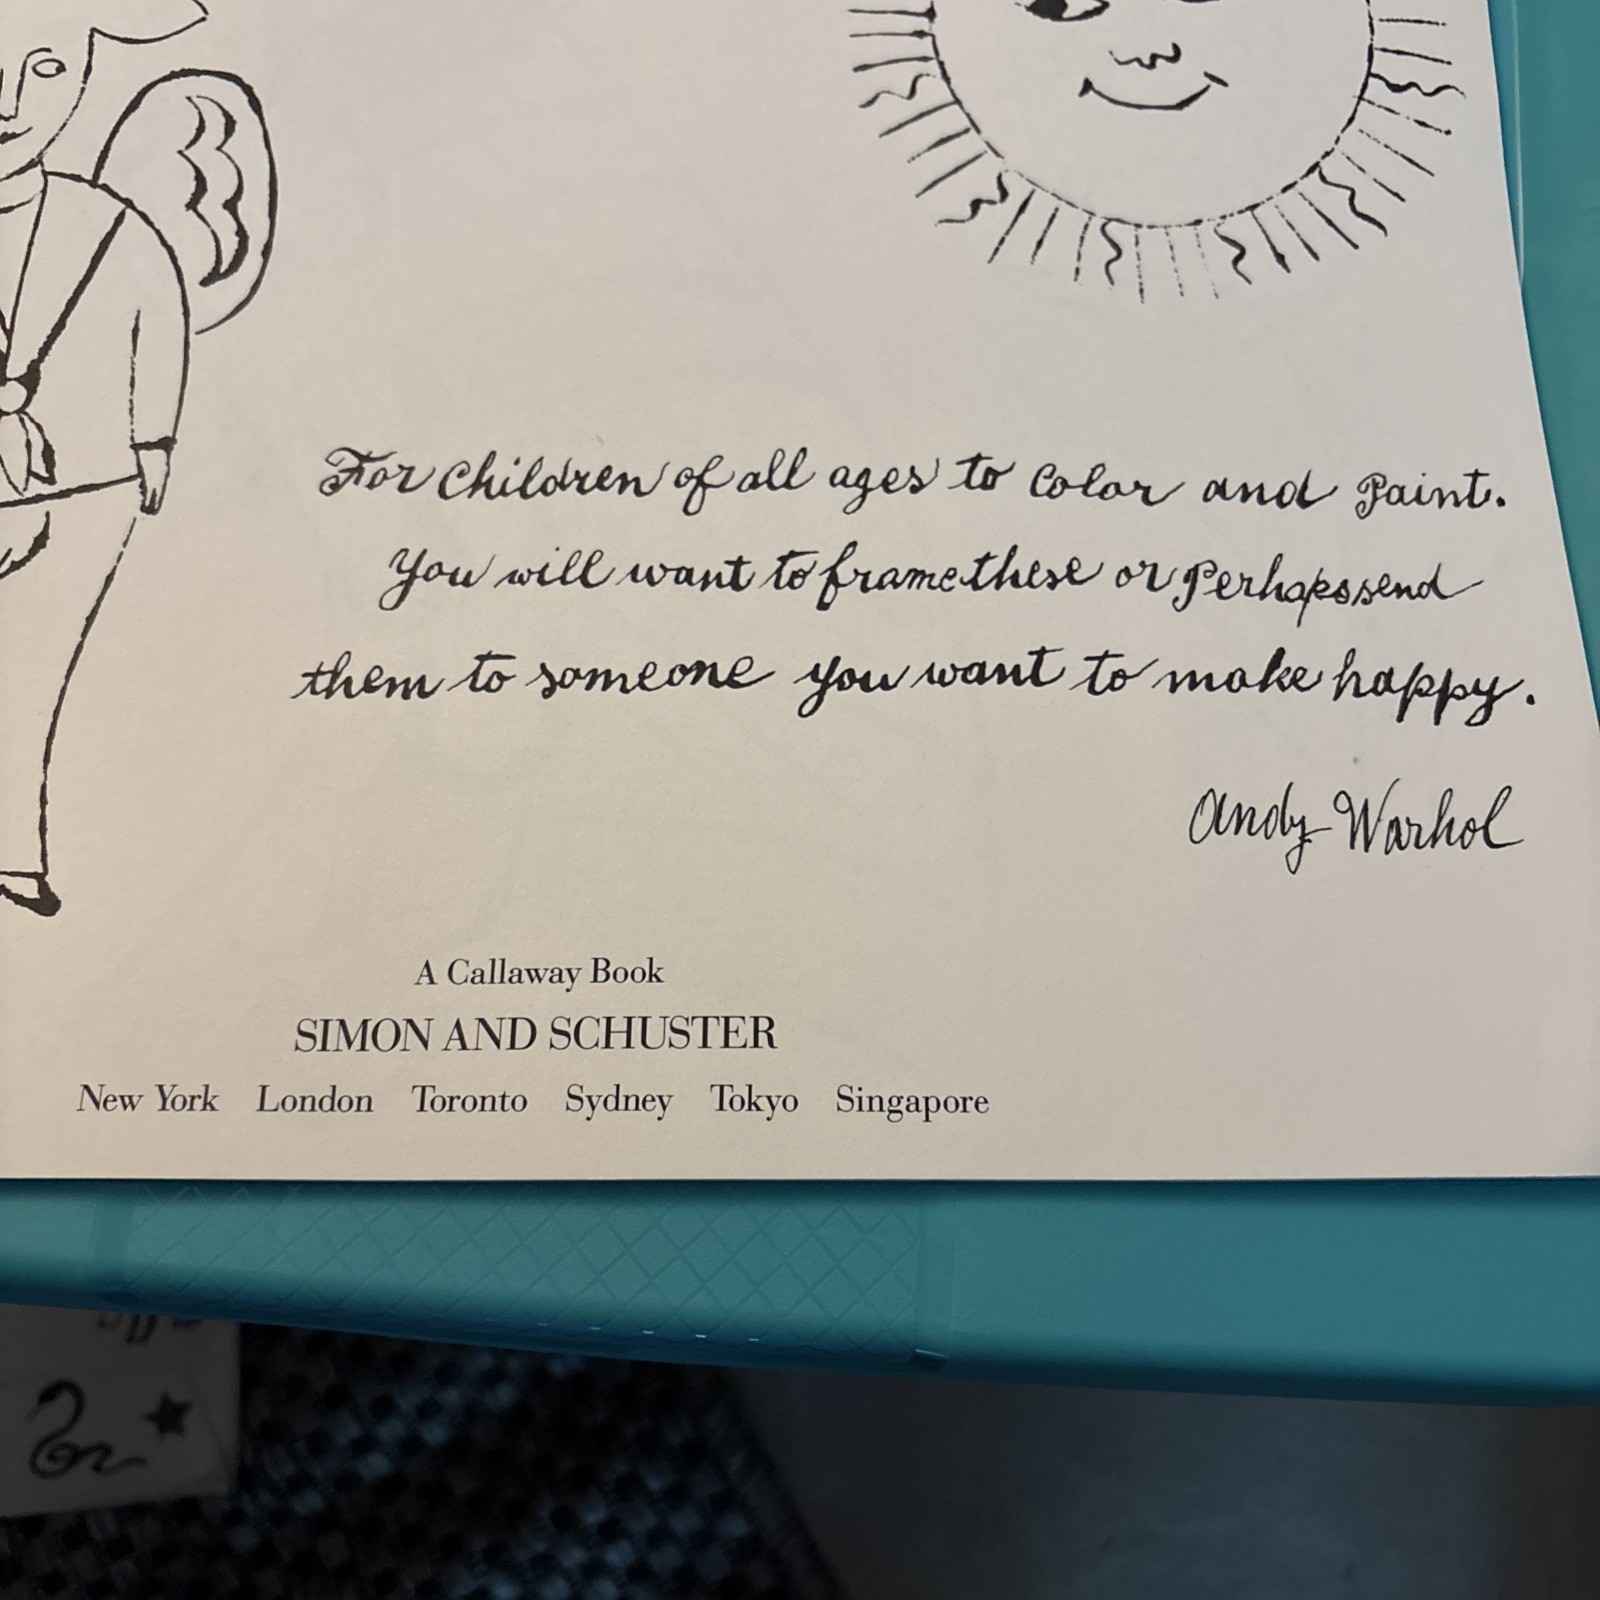 For Children of all ages to Color and Paint.
You will want to frame these or Perhaps send
them to someone you want to make happy.
Andy Warhol
A Callaway Book
SIMON AND SCHUSTER
New York London Toronto Sydney Tokyo Singapore